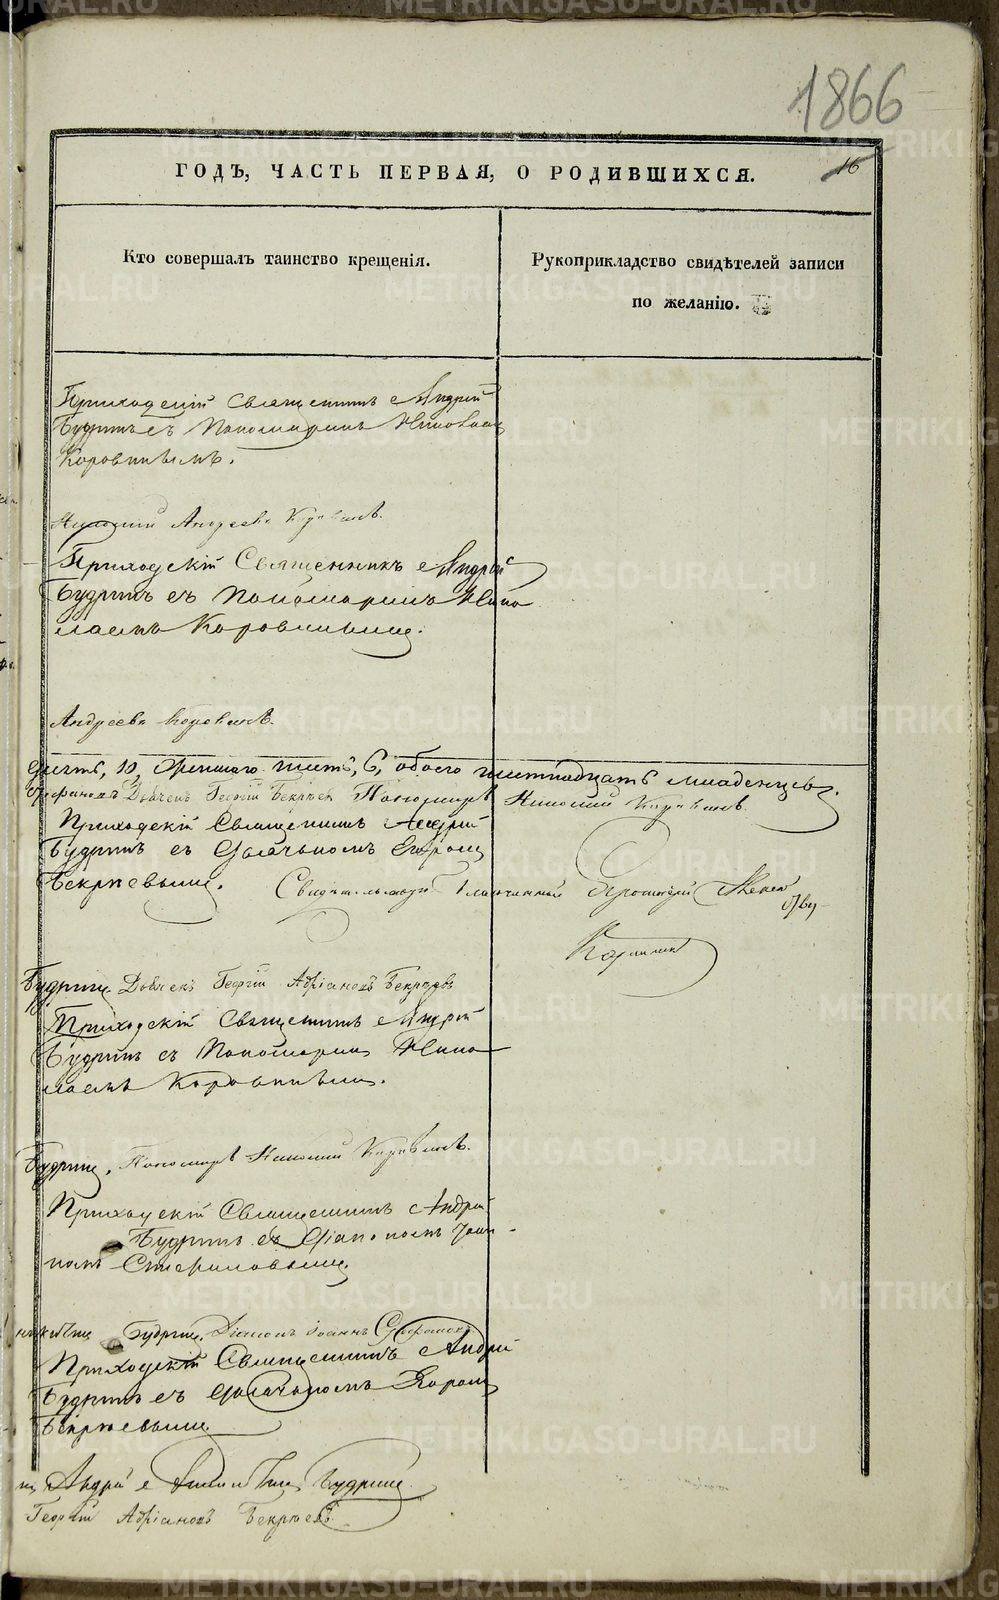 1866
16
ГОДЪ, ЧАСТЬ ПЕРВАЯ, О РОДИВШИХСЯ.
Кто совершалъ таинство крещенія.
Рукоприкладство свидѣтелей записи
по желанію.
Приходскій Священникъ Андрей
Будринъ съ Пономаремъ Николаемъ
Коровинымъ.
Николай Андреевъ Коровинъ.
Приходскій Священникъ Андрей
Будринъ съ Пономаремъ Нико
лаемъ Коровинымъ.
Андреевъ Коровинъ.
10, женскаго шесть, 6, обоего шестнадцать младенцевъ.
Дьячекъ Георгій Бекряевъ Пономарь Николай Коровинъ
Приходскій Священникъ Андрей
Будринъ съ Дьячкомъ Егоромъ
Бекряевымъ.
Свидѣтельствовалъ Благочинный
Будринъ Дьячекъ Георгій Адріановъ Бекряевъ
Приходскій Священникъ Андрей
Будринъ съ Пономаремъ Нико
лаемъ Коровинымъ.
Будринъ, Пономарь Николай Коровинъ.
Приходскій Священникъ Андрей
Будринъ съ Діакономъ Іоан-
номъ
Будринъ, Діаконъ Іоаннъ
Приходскій Священникъ Андрей
Будринъ съ Дьячкомъ Егоромъ
Бекряевымъ
Андрей Будринъ
Георгій Адріановъ Бекряевъ
METRIKI.GASO-URAL.RU